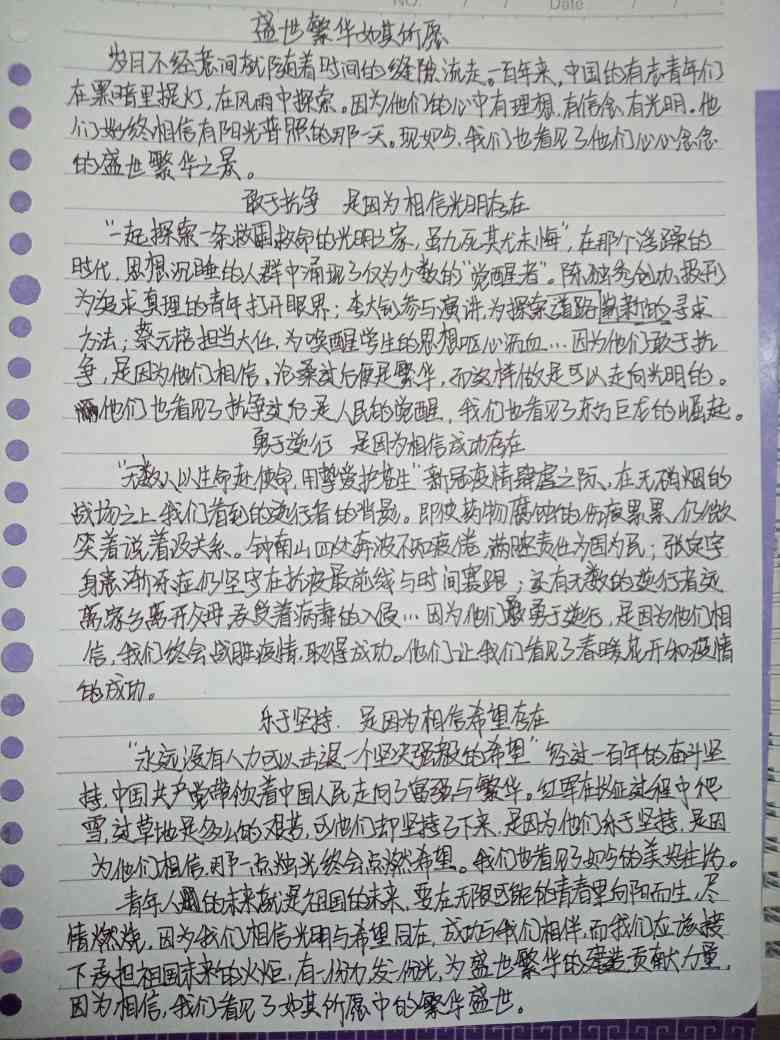 NO.
Date
盛世繁华如其所愿
岁月不经意间就随着时间的缝隙流走。一百年来，中国的有志青年们
在黑暗里提灯，在风雨中探索。因为他们的心中有理想，有信念，有光明。他
们始终相信有阳光普照的那一天。现如今，我们也看见了他们心心念念
的盛世繁华之景。
敢于抗争 是因为相信光明存在
“一起探索一条救国救命的光明之家，虽九死其尤未悔”，在那个浮躁的
时代，思想沉睡的人群中涌现了仅为少数的“觉醒者”。陈独秀创办报刊
为追求真理的青年打开眼界；李大钊参与演讲，为探索道路崭新的寻求
方法；蔡元培担当大任，为唤醒学生的思想呕心沥血…因为他们敢于抗
争，是因为他们相信，沧桑过后便是繁华，而这样做是可以走向光明的。
他们也看见了抗争过后是人民的觉醒，我们也看见了东方巨龙的崛起。
勇于逆行 是因为相信成功存在
“无数人以生命赴使命，用挚爱护苍生”新冠疫情肆虐之际，在无硝烟的
战场之上，我们看到的逆行者的背影。即使药物腐蚀的伤疲累累，仍微
笑着说着没关系。钟南山四处奔波不知疲倦，满腔责任为国为民；张定宇
身患渐冻症仍坚守在抗疫最前线与时间赛跑；还有无数的逆行者远
离家乡离开父母承受着病毒的入侵…因为他们勇于逆行，是因为他们相
信，我们终会战胜疫情，取得成功。他们让我们看见了春暖花开和疫情
的成功。
乐于坚持 是因为相信希望存在
“永远没有人力可以击退一个坚决强毅的希望”经过一百年的奋斗坚
持，中国共产党带领着中国人民走向了富强与繁华。红军在长征过程中爬
雪，过草地是多么的艰苦，可他们却坚持了下来，是因为他们乐于坚持，是因
为他们相信，那一点烛光终会点燃希望。我们也看见了如今的美好生活。
青年人的未来就是祖国的未来，要在无限可能的青春里向阳而生，尽
情燃烧，因为我们相信光明与希望同在，成功与我们相伴，而我们应该接
下承担祖国未来的火炬，有一份力，发一份光，为盛世繁华的建造贡献力量，
因为相信，我们看见了如其所愿中的繁华盛世。